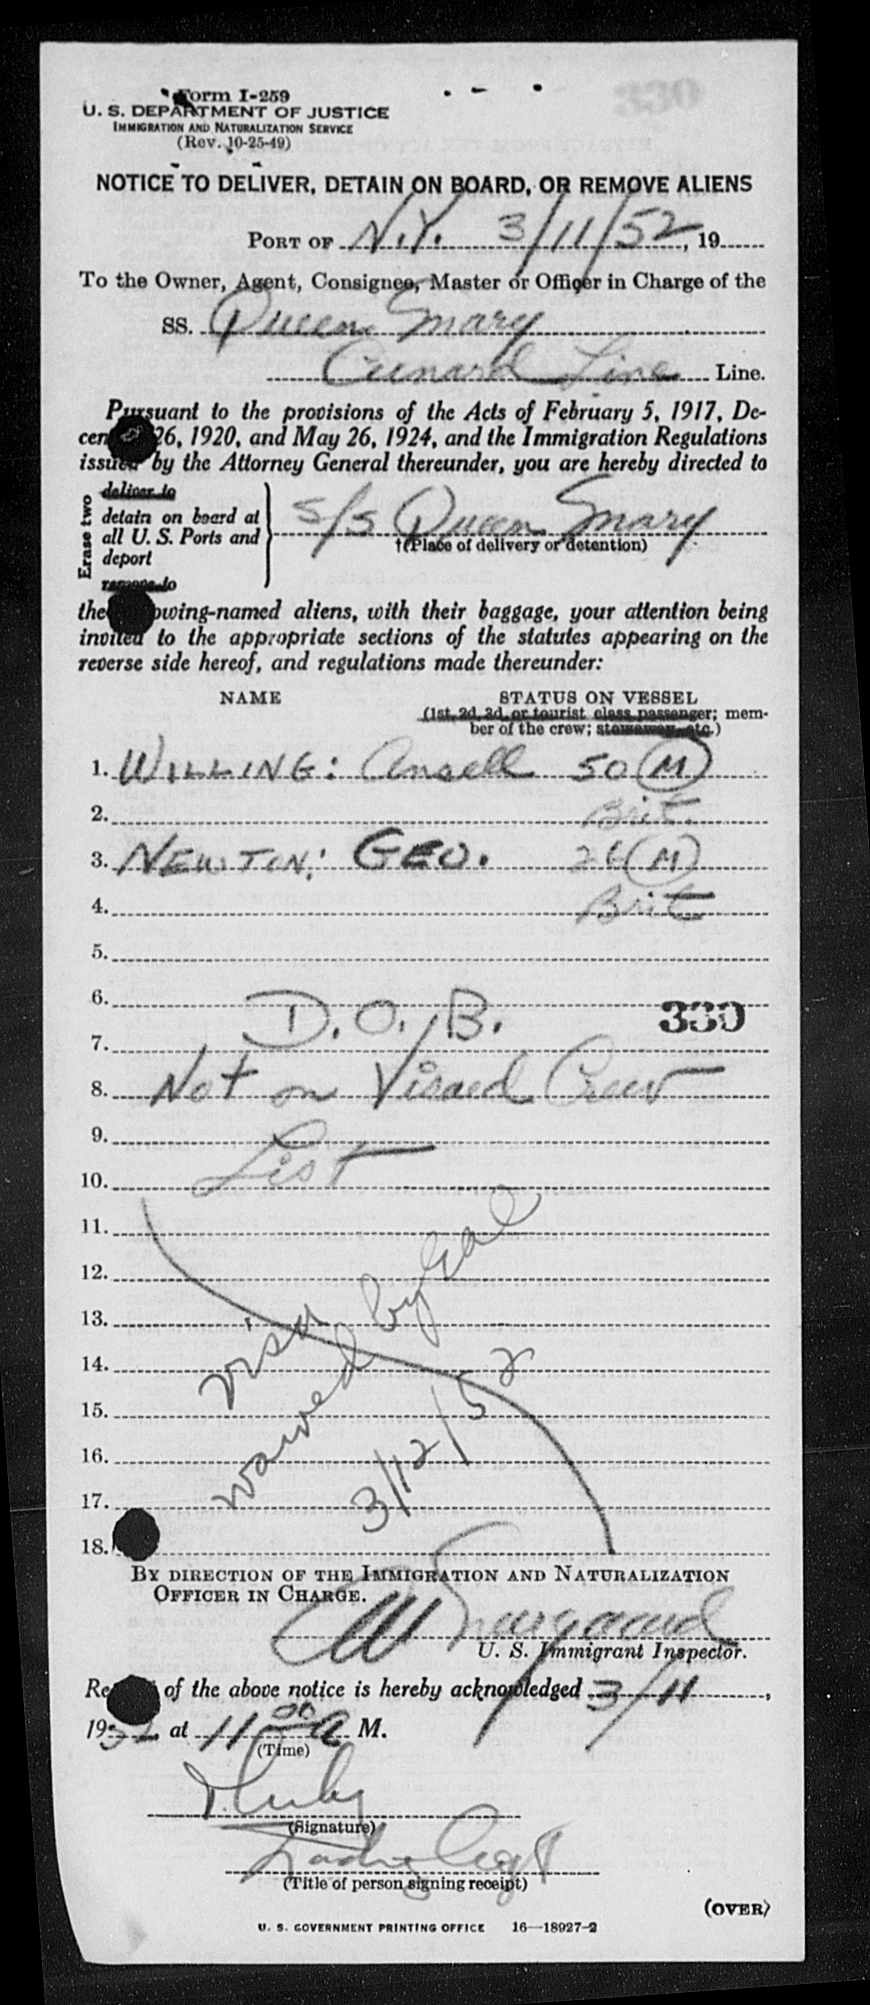 Form I-259
U. S. DEPARTMENT OF JUSTICE
IMMIGRATION AND NATURALIZATION SERVICE
(Rev. 10-25-49)
330
NOTICE TO DELIVER, DETAIN ON BOARD, OR REMOVE ALIENS
PORT OF N.Y. 3/11/52, 19
To the Owner, Agent, Consignee, Master or Officer in Charge of the
SS. Queen Mary
Cunard Line Line.
Pursuant to the provisions of the Acts of February 5, 1917, De-
26, 1920, and May 26, 1924, and the Immigration Regulations
issued by the Attorney General thereunder, you are hereby directed to
Erase two
deliver to
detain on board at
all U. S. Ports and
deport
remove to
S/S Queen Mary
†(Place of delivery or detention)
the owing-named aliens, with their baggage, your attention being
invited to the appropriate sections of the statutes appearing on the
reverse side hereof, and regulations made thereunder:
NAME STATUS ON VESSEL
(1st, 2d, 3d, or tourist class passenger; mem-
ber of the crew; stowaway, etc.)
1. WILLING: Ansell 50 (M)
2. Brit.
3. NEWTON: GEO. 26 (M)
4. Brit
5.
6. D.O.B. 330
7.
8. Not on Visaed Crew
9.
10. List
11.
12.
13. visa
14. waived by
15.
16. 3/12/52
17.
18.
BY DIRECTION OF THE IMMIGRATION AND NATURALIZATION
OFFICER IN CHARGE.
U. S. Immigrant Inspector.
Re of the above notice is hereby acknowledged 3/11,
1952 at 11 00 A M.
(Time)
(Signature)
(Title of person signing receipt)
(OVER)
U. S. GOVERNMENT PRINTING OFFICE 16—18927-2